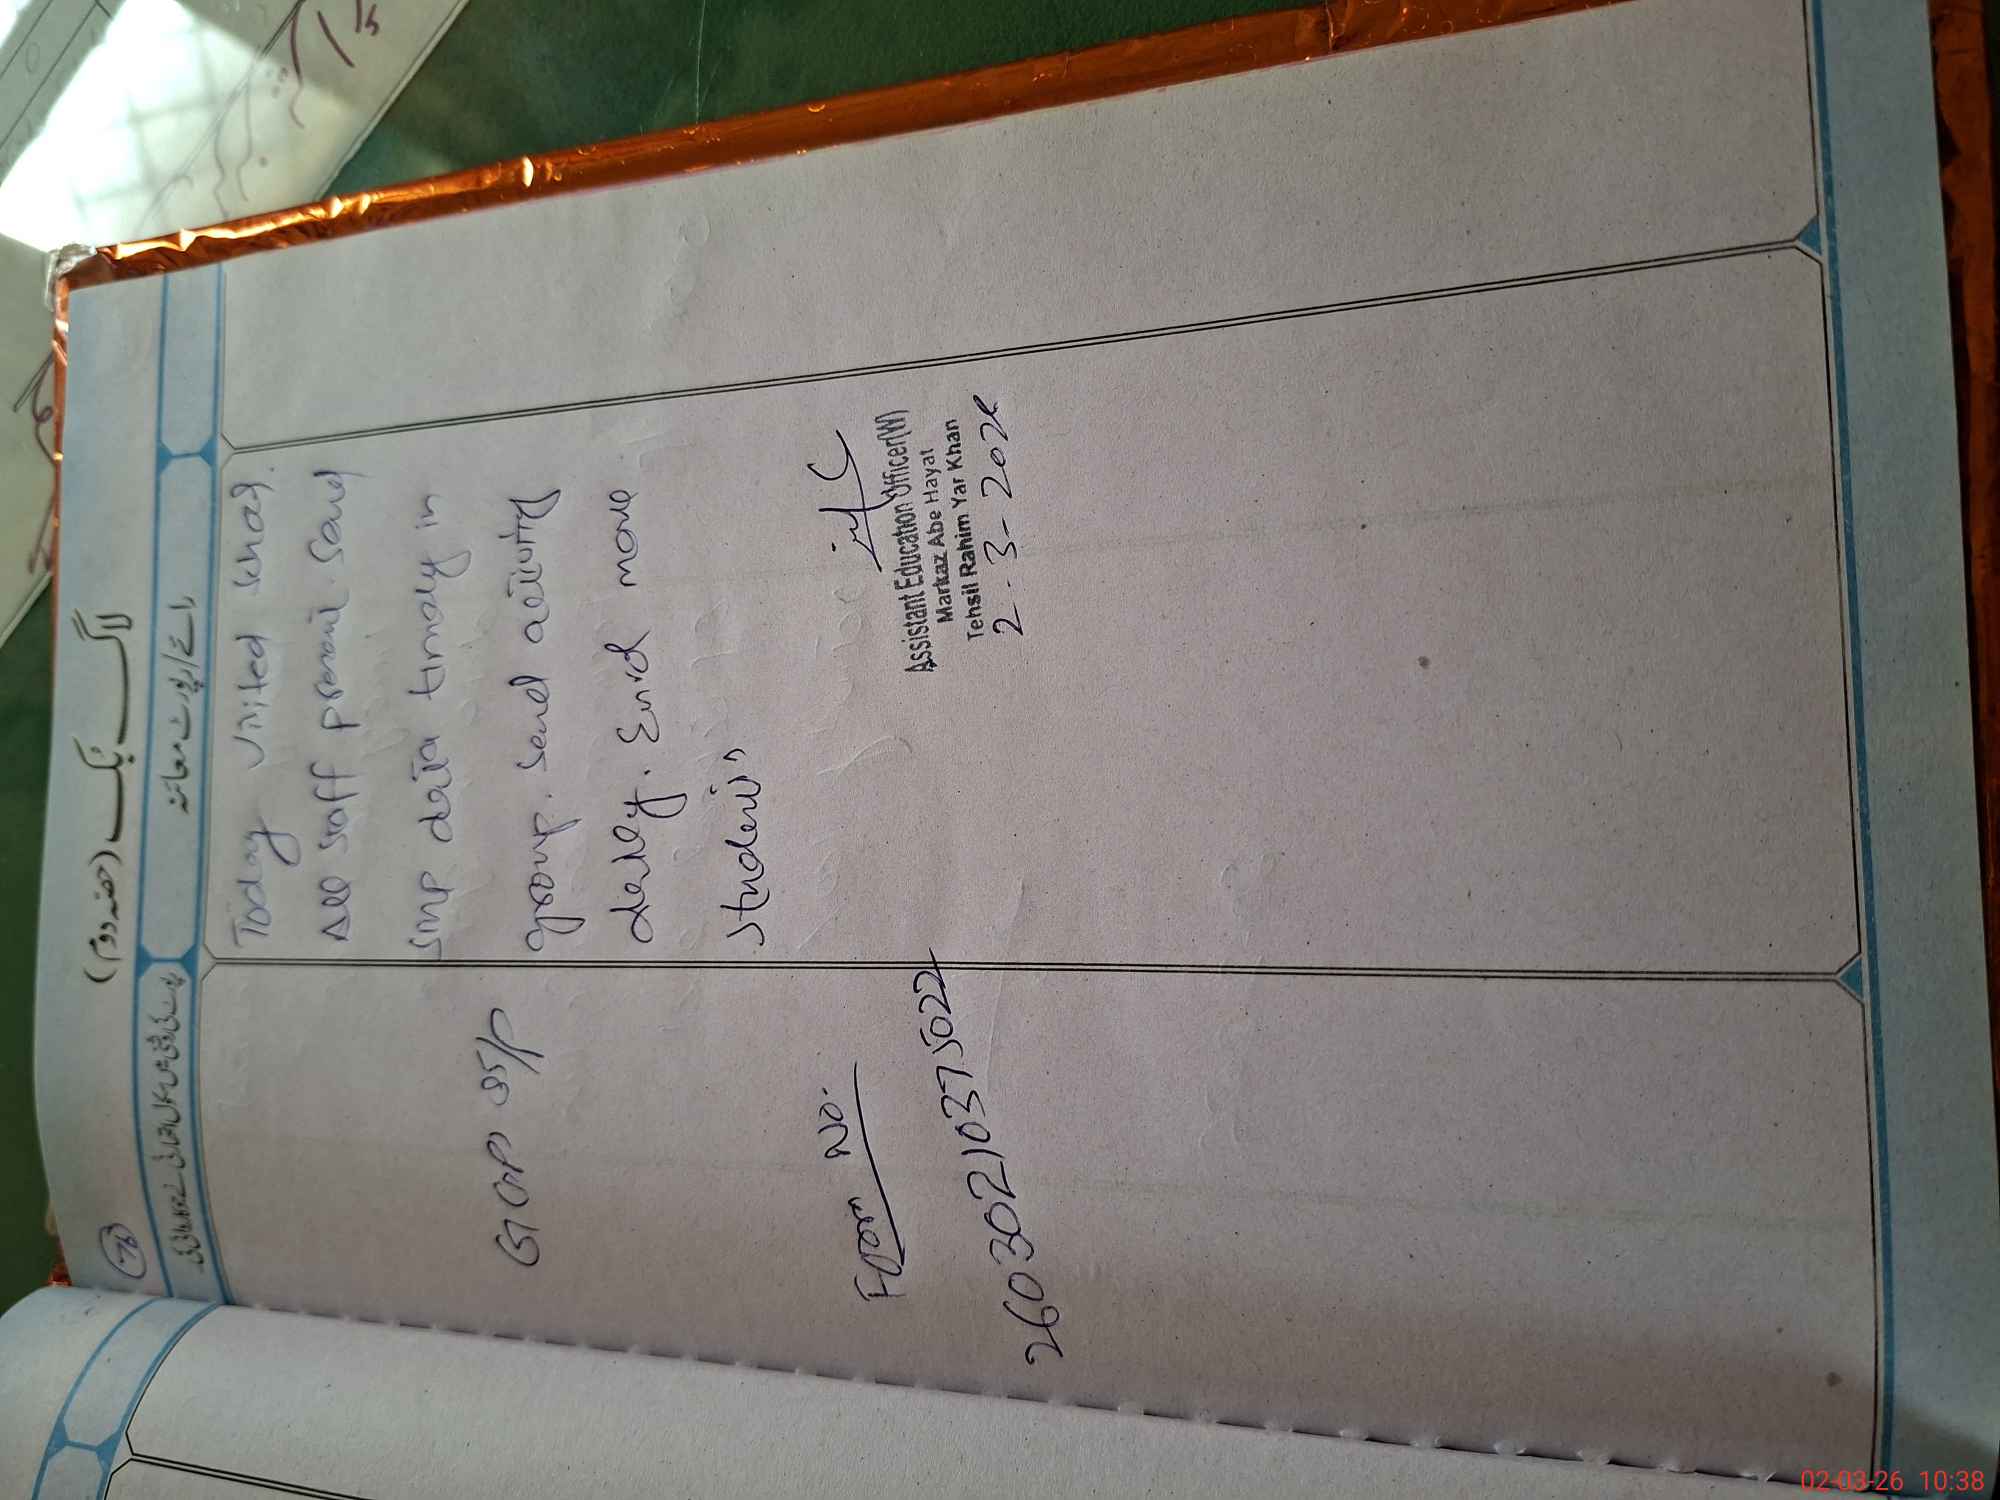 لاگ بُک (حصہ دوم)
رائے/رپورٹ معائنہ
Today visited school.
All staff present. Send
SMP data timely in
group. Send activity
daily. Enrol more
students
Form No.
26030210375022
Assistant Education Officer(W)
Markaz Abe Hayat
Tehsil Rahim Yar Khan
2-3-202
02-03-26 10:38